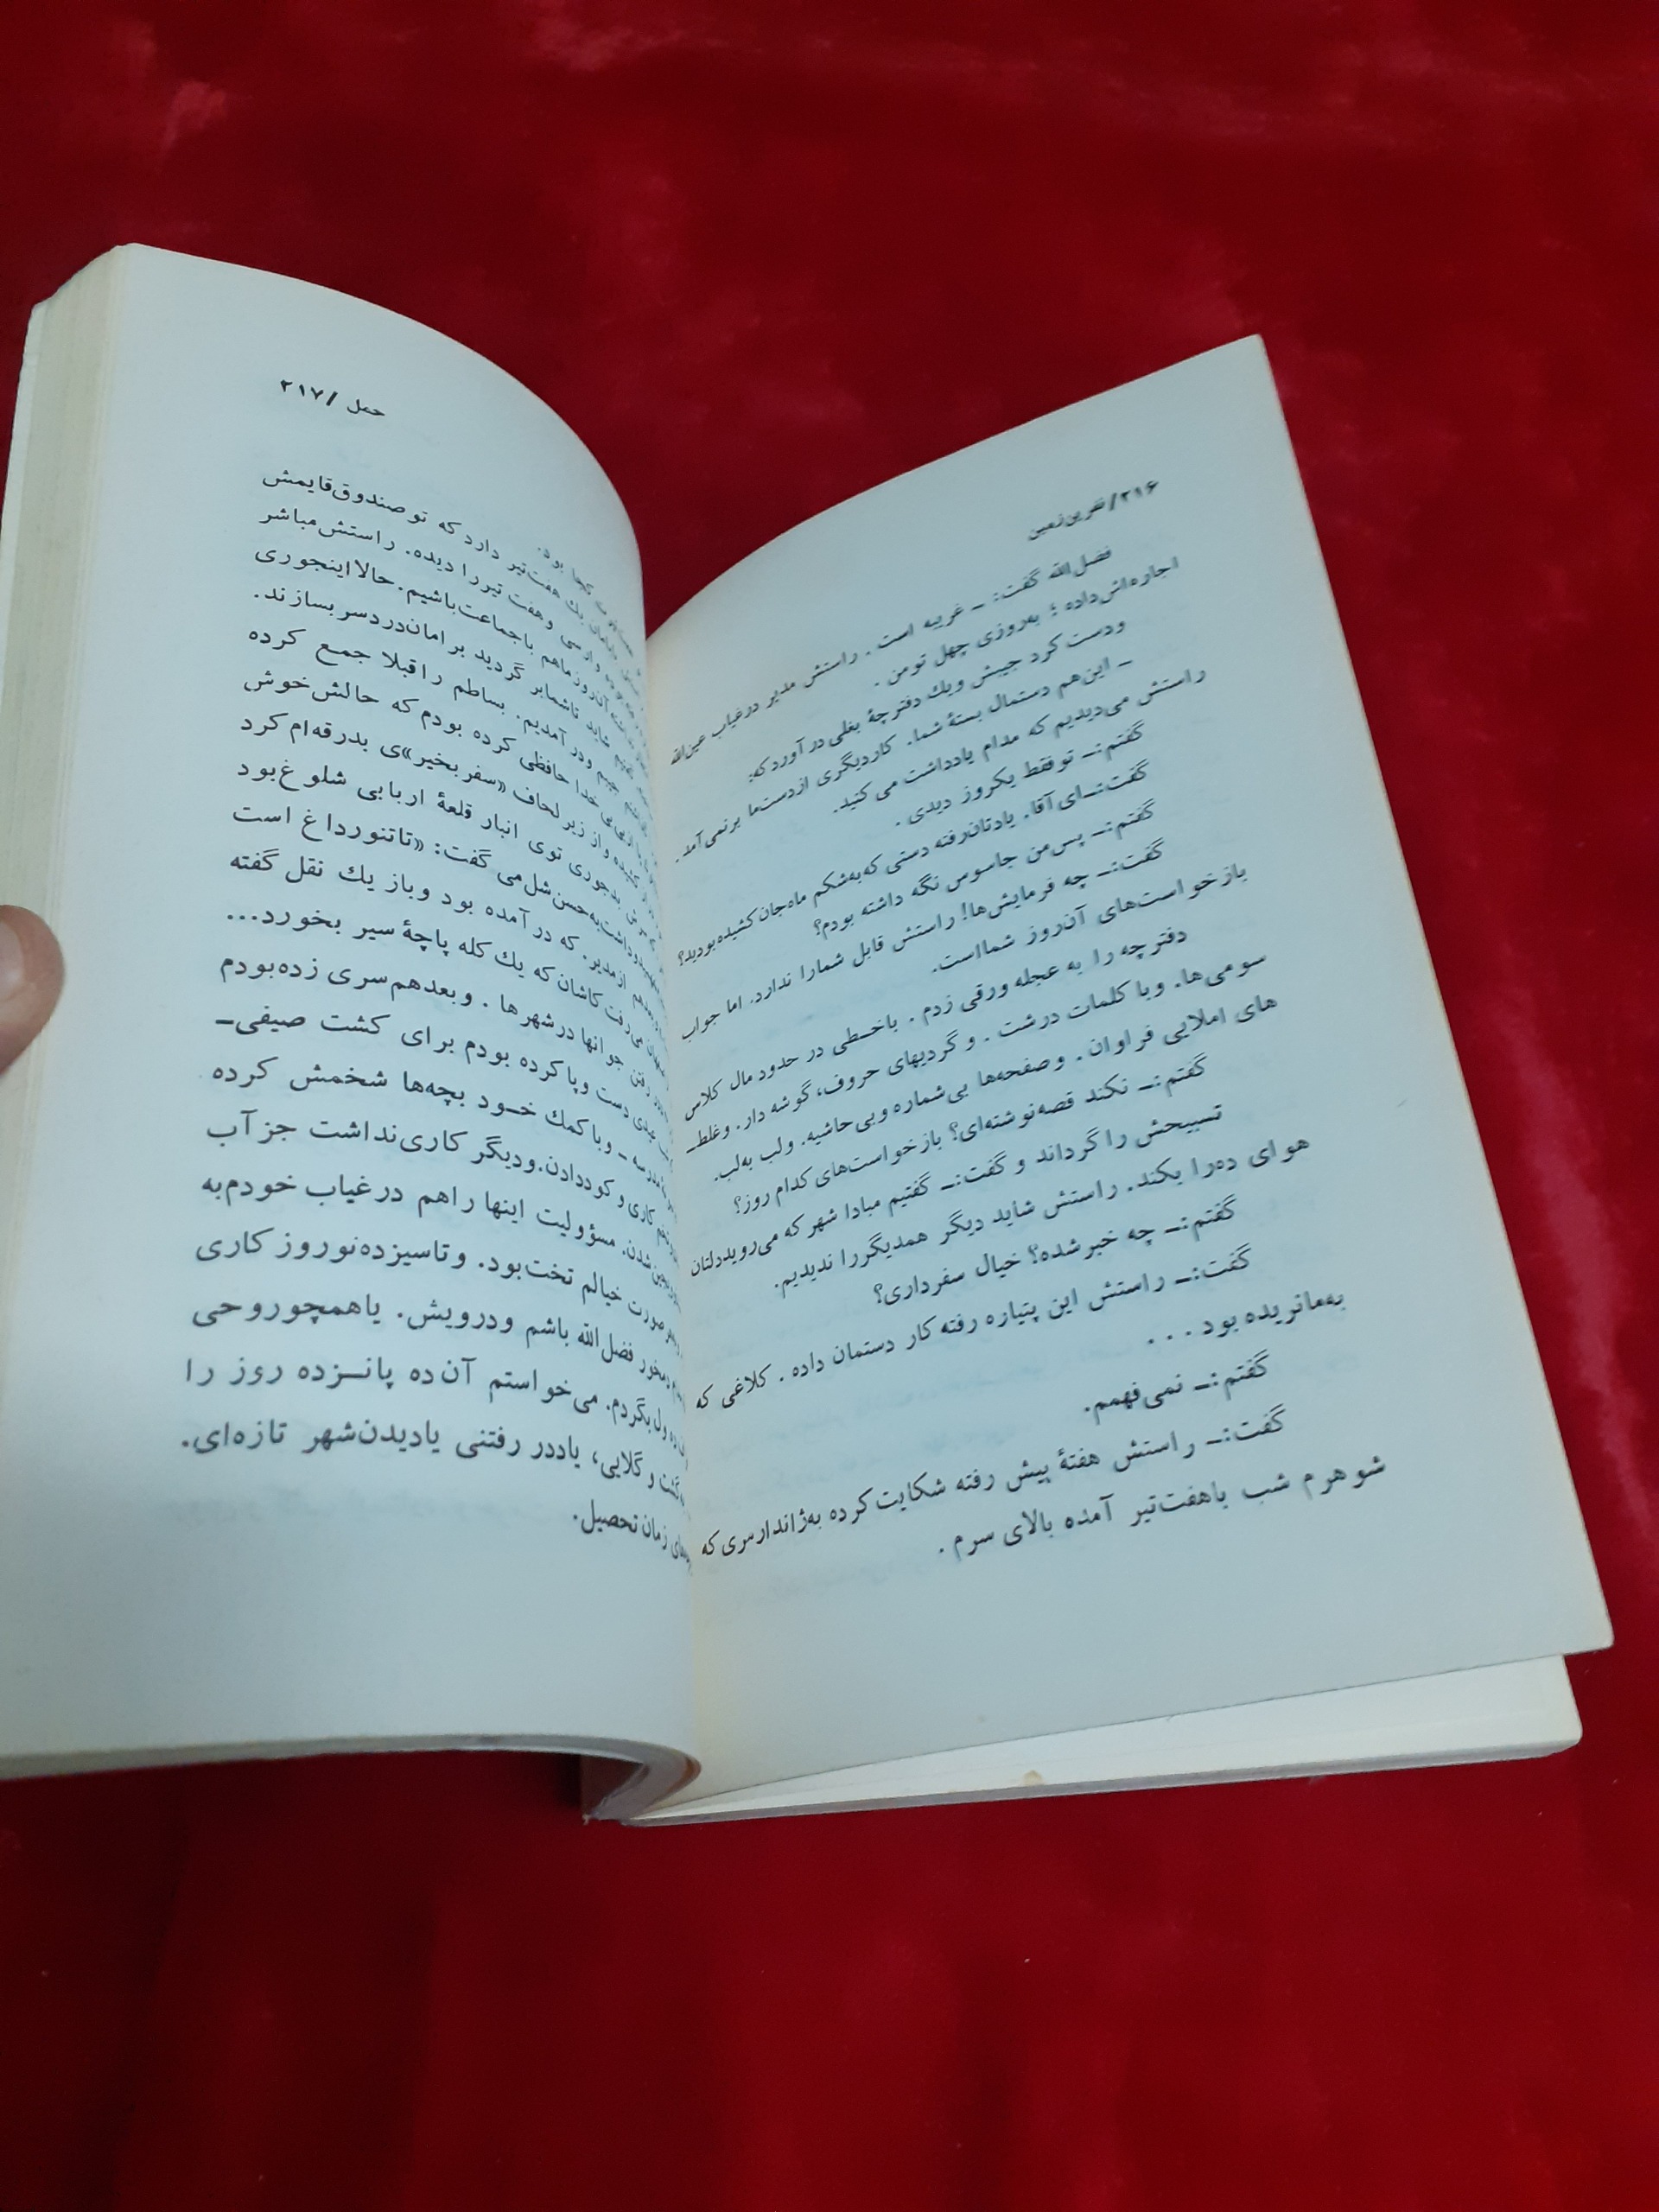 ۲۱۶/نفرین‌زمین
فضل‌الله گفت:ـ غریبه است . راستش مدیر درغیاب عین‌الله
اجاره‌اش‌داده ؛ به‌روزی چهل تومن .
ودست کرد جیبش ویك دفترچهٔ بغلی در آورد که:
ـ این‌هم دستمال بستهٔ شما. کاردیگری ازدست‌ما برنمی‌آمد .
راستش می‌دیدیم که مدام یادداشت می‌کنید.
گفتم:ـ توفقط یکروز دیدی .
گفت:ـ‌ای آقا. یادتان‌رفته دستی که‌به‌شکم ماه‌جان کشیده‌بودید؟
گفتم:ـ پس‌من جاسوس نگه داشته بودم؟
گفت:ـ چه فرمایش‌ها! راستش قابل شمارا ندارد. اما جواب
بازخواست‌های آن‌روز شمااست.
دفترچه را به عجله ورقی زدم . باخـطی در حدود مال کلاس
سومی‌ها. وبا کلمات درشت . و گردیهای حروف، گوشه دار. وغلطـ
های املایی فراوان . وصفحه‌ها بی‌شماره وبی‌حاشیه. ولب به‌لب.
گفتم:ـ نکند قصه‌نوشته‌ای؟ بازخواست‌های کدام روز؟
تسبیحش را گرداند و گفت:ـ گفتیم مبادا شهر که می‌رویددلتان
هوای ده‌را بکند. راستش شاید دیگر همدیگررا ندیدیم.
گفتم:ـ چه خبرشده؟ خیال سفرداری؟
گفت:ـ راستش این پتیازه رفته کار دستمان داده . کلاغی که
به‌مانریده بود . . .
گفتم:ـ نمی‌فهمم.
گفت:ـ راستش هفتهٔ پیش رفته شکایت کرده به‌ژاندارمری که
شوهرم شب باهفت‌تیر آمده بالای سرم .
حمل /۲۱۷
کجا بود.
یك هفت‌تیر دارد که توصندوق‌قایمش
وارسی وهفت تیررا دیده. راستش‌مباشر
آن‌روزماهم باجماعت‌باشیم.حالااینجوری
شاید تاشمابر گردید برامان‌دردسربسازند.
ودر آمدیم. بساطم راقبلا جمع کرده
خدا حافظی کرده بودم که حالش‌خوش
واز زیر لحاف «سفربخیر»ی بدرقه‌ام کرد
بدجوری توی انبار قلعهٔ اربابی شلوغ‌بود
به‌حسن‌شل‌می گفت: «تاتنورداغ است
ازمدیر. که در آمده بود وباز یك نقل گفته
می‌رفت کاشان‌که یك کله پاچهٔ سیر بخورد...
رفتن جوانها درشهرها . وبعدهم‌سری زده‌بودم
دست وپاکرده بودم برای کشت صیفی‌ـ
مدرسه ـ وباکمك خـود بچه‌ها شخمش کرده
کاری و کوددادن.ودیگر کاری‌نداشت جز آب
شدن. مسؤولیت اینها راهم درغیاب خودم‌به
صورت خیالم تخت‌بود. وتاسیزده‌نوروز کاری
دمخور فضل‌الله باشم ودرویش. یاهمچوروحی
ول بگردم. می‌خواستم آن‌ده پانـزده روز را
گشت و گلایی، یاددر رفتنی یادیدن‌شهر تازه‌ای.
زمان تحصیل.